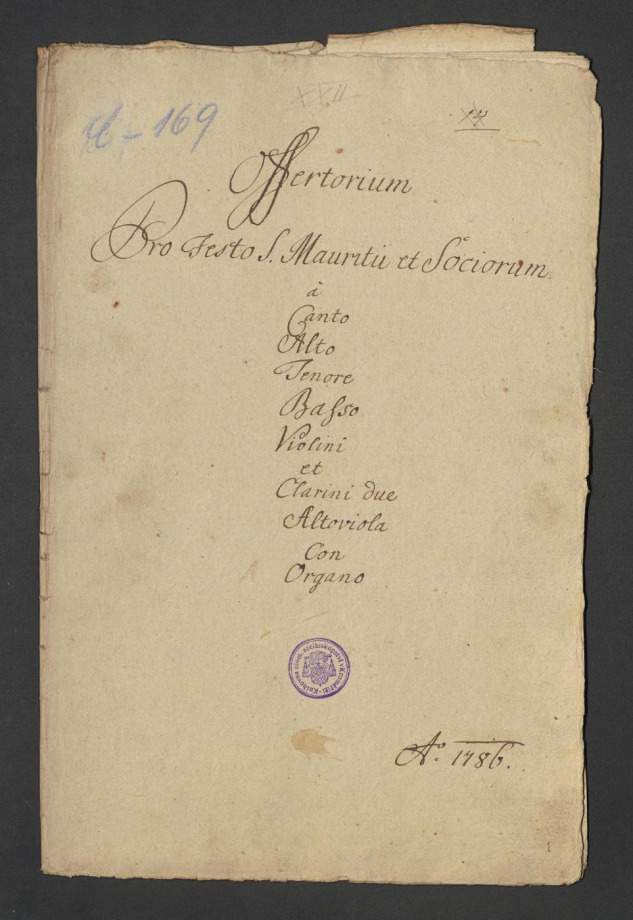 -169
XVII
Offertorium
Pro Festo S. Mauritii et Sociorum.
à
Canto
Alto
Tenore
Basso
Violini
et
Clarini due
Altoviola
Con
Organo
Knihovna olom. arcibiskupství v Kroměříži
Aº. 1786.